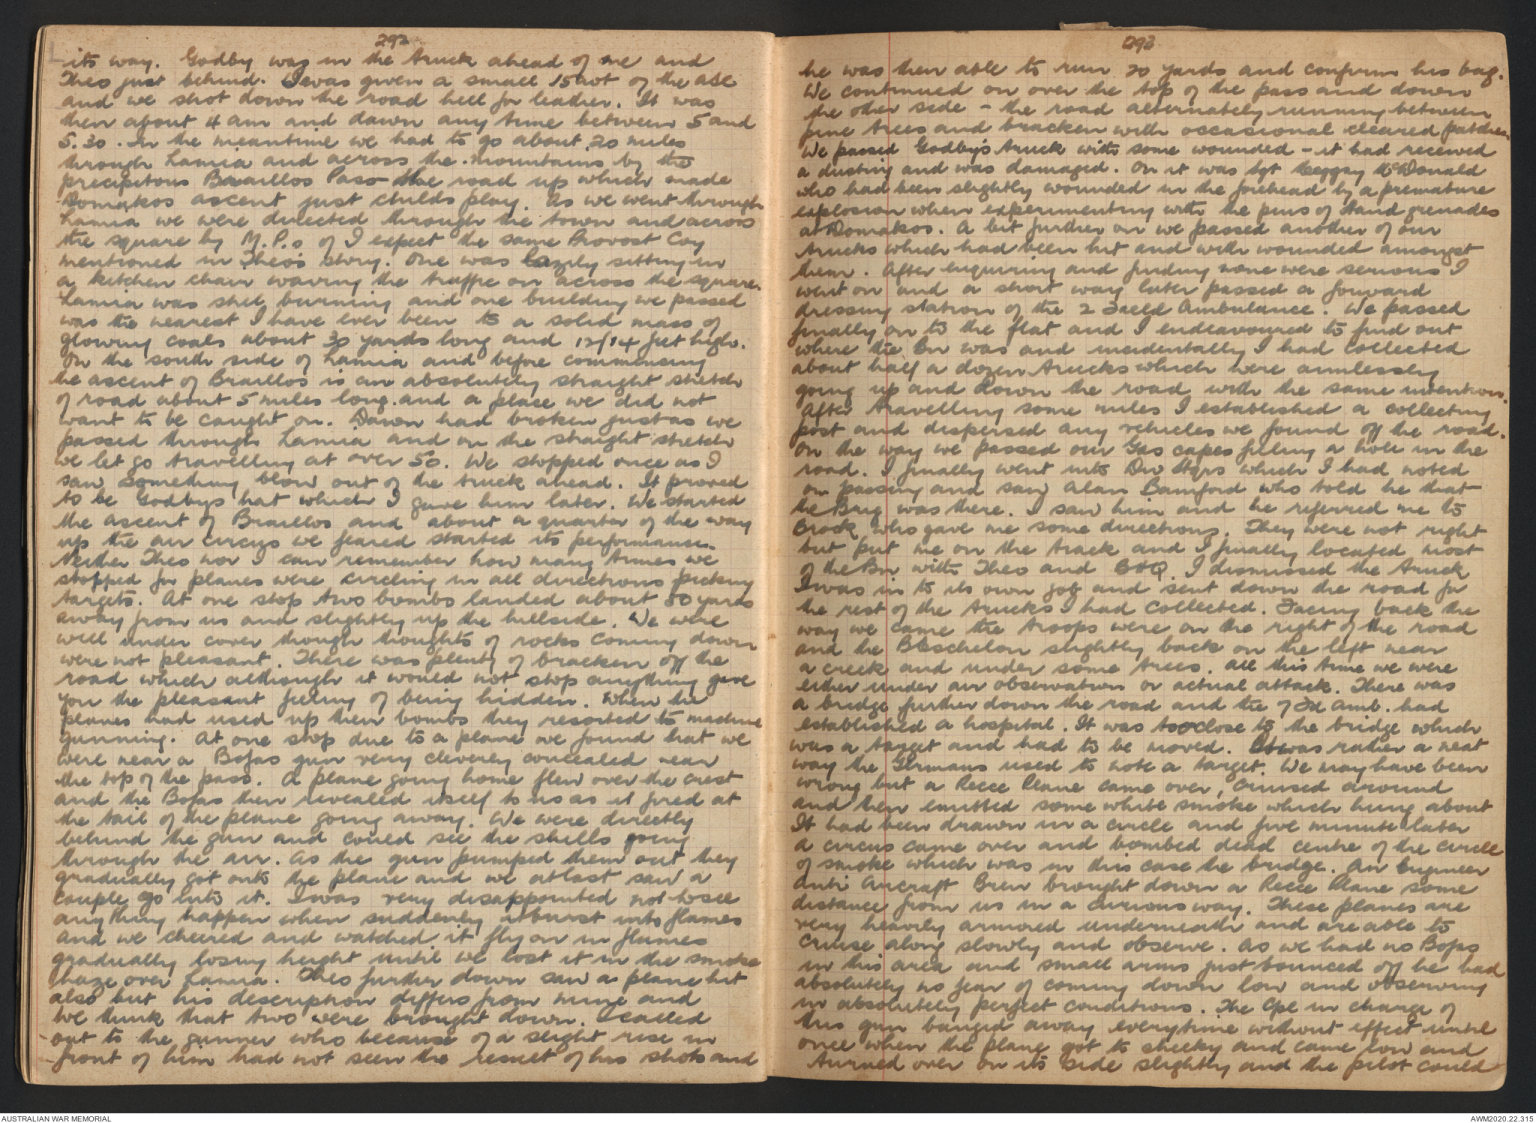 292
its way. Godby was in the truck ahead of me and
Theo just behind. I was given a small 15 cwt of the ASC
and we shot down the road hell for leather. It was
then about 4 am and dawn any time between 5 and
5.30. In the meantime we had to go about 20 miles
through Lamia and across the mountains by the
precipitous Braillos Pass the road up which made
Domakos ascent just childs play. As we went through
Lamia we were directed through the town and across
the square by M.P.s of I expect the same Provost Coy
mentioned in Theo's story. One was lazily sitting in
a kitchen chair waving the traffic on across the square.
Lamia was still burning and one building we passed
was the nearest I have ever been to a solid mass of
glowing coals about 30 yards long and 12/14 feet high.
On the south side of Lamia and before commencing
the ascent of Braillos is an absolutely straight stretch
of road about 5 miles long and a place we did not
want to be caught on. Dawn had broken just as we
passed through Lamia and on the straight stretch
we let go travelling at over 50. We stopped once as I
saw something blow out of the truck ahead. It proved
to be Godbys hat which I gave him later. We started
the ascent of Braillos and about a quarter of the way
up the air circus we feared started its performance.
Neither Theo nor I can remember how many times we
stopped for planes were circling in all directions picking
targets. At one stop two bombs landed about 50 yards
away from us and slightly up the hillside. We were
well under cover though thoughts of rocks coming down
were not pleasant. There was plenty of bracken off the
road which although it would not stop anything gave
you the pleasant feeling of being hidden. When the
planes had used up their bombs they resorted to machine
gunning. At one stop due to a plane we found that we
were near a Bofas gun very cleverly concealed near
the top of the pass. A plane going home flew over the crest
and the Bofas then revealed itself to us as it fired at
the tail of the plane going away. We were directly
behind the gun and could see the shells going
through the air. As the gun pumped them out they
gradually got onto the plane and we at last saw a
couple go into it. I was very disappointed not to see
anything happen when suddenly it burst into flames
and we cheered and watched it fly on in flames
gradually losing height until we lost it in the smoke
haze over Lamia. Theo further down saw a plane hit
also but his description differs from mine and
we think that two were brought down. I called
out to the gunner who because of a slight rise in
front of him had not seen the result of his shots and
293
he was then able to run 20 yards and confirm his bag.
We continued on over the top of the pass and down
the other side - the road alternately running between
pine trees and bracken with occasional cleared patches.
We passed Godby's truck with some wounded - it had received
a dusting and was damaged. On it was Sgt McDonald
who had been slightly wounded in the forehead by a premature
explosion when experimenting with the pins of Hand grenades
at Domakos. A bit further on we passed another of our
trucks which had been hit and with wounded amongst
them. After enquiring and finding none were serious I
went on and a short way later passed a forward
dressing station of the 2 Field Ambulance. We passed
finally on to the flat and I endeavoured to find out
where the Bn was and incidentally I had collected
about half a dozen trucks which were aimlessly
going up and down the road with the same intention.
After travelling some miles I established a collecting
post and dispersed any vehicles we found off the road.
On the way we passed our Gas capes filling a hole in the
road. I finally went into Div Hqrs which I had noted
on passing and saw Alan Bamford who told me that
the Brig was there. I saw him and he referred me to
Crook who gave me some directions. They were not right
but put me on the track and I finally located most
of the Bn with Theo and COQ. I dismissed the truck
I was in to its own job and sent down the road for
the rest of the trucks I had collected. Facing back the
way we came the troops were on the right of the road
and the B Eschelon slightly back on the left near
a creek and under some trees. All this time we were
either under air observation or actual attack. There was
a bridge further down the road and the 7 Fd Amb. had
established a hospital. It was too close to the bridge which
was a target and had to be moved. It was rather a neat
way the Germans used to note a target. We may have been
wrong but a Recce Plane came over, cruised around
and then emitted some white smoke which hung about
It had been drawn in a circle and five minutes later
a circus came over and bombed dead centre of the circle
of smoke which was in this case the bridge. An Engineer
anti Aircraft Bren brought down a Recce Plane some
distance from us in a curious way. These planes are
very heavily armored underneath and are able to
cruise along slowly and observe. As we had no Bofas
in this area and small arms just bounced off he had
absolutely no fear of coming down low and observing
in absolutely perfect conditions. The Cpl in charge of
this gun banged away everytime without effect until
once when the plane got to cheeky and came low and
turned over on its side slightly and the pilot could
AUSTRALIAN WAR MEMORIAL
AWM2020.22.315